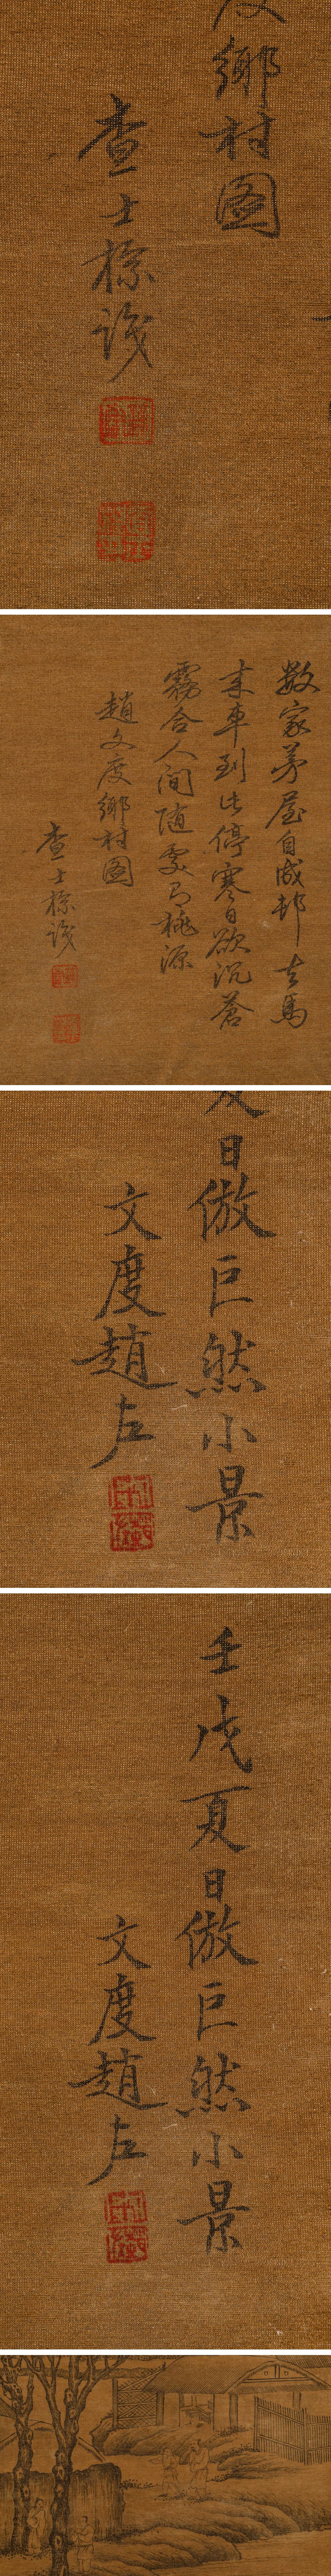 鄉村圖
查士標識
数家茅屋自成邨去馬
来車到此停寒日欲沉蒼
霧合人間随處有桃源
趙文度鄉村圖
查士標識
日倣巨然小景
文度趙左
壬戌夏日倣巨然小景
文度趙左